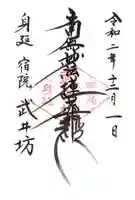 令和二年十二月一日
南無妙法蓮華経
身延
身延 宿院 武井坊